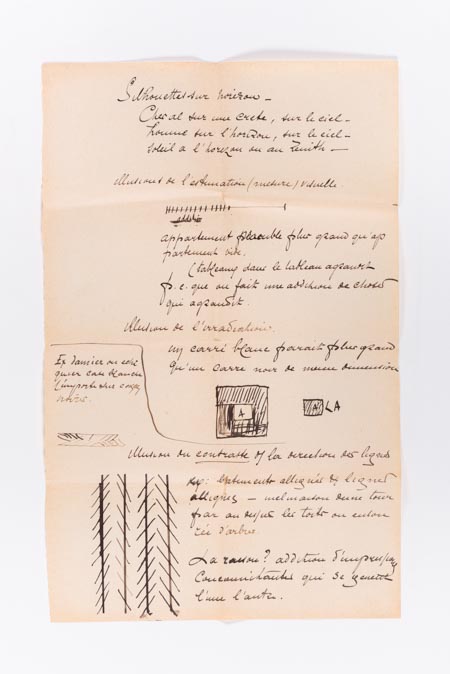 Silhouettes sur horizon –
Cheval sur une crete, sur le ciel –
homme sur l'horizon, sur le ciel –
soleil a l'horizon ou au Zenith –
illusions de l'estimation (mesure) visuelle.
appartement meublé plus grand qu'ap
partement vide.
(tableaux dans le tableau agrandit
p.c. que on fait une addition de choses
qui agrandit.
Illusion de l'irradiation.
un carré blanc parait plus grand
qu'un carre noir de meme dimension
Ex damier ou echi
quier case blanche
l'importe sur case
noire.
A
A
LA
Illusion du contraste & la direction des lignes
ex: batiments allignés & lignes
– inclinaison d'une tour
par au dessus les toits ou
d'arbre.
La raison? addition d'impressions
Concommitantes qui se genent
l'une l'autre.